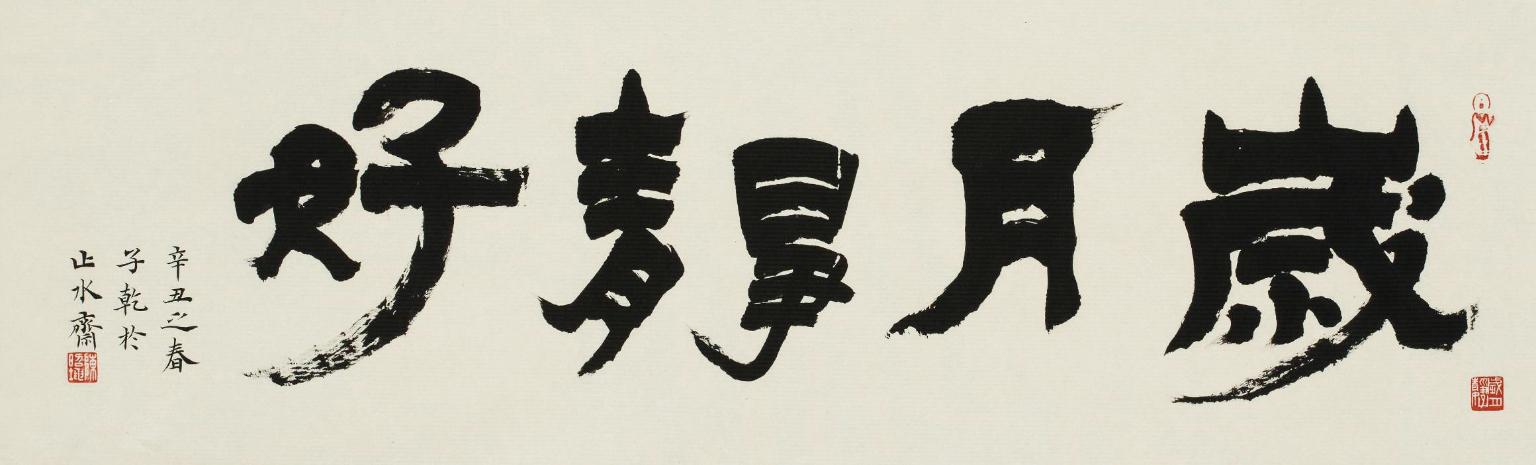 歲月靜好
辛丑之春
子乾於
止水齋